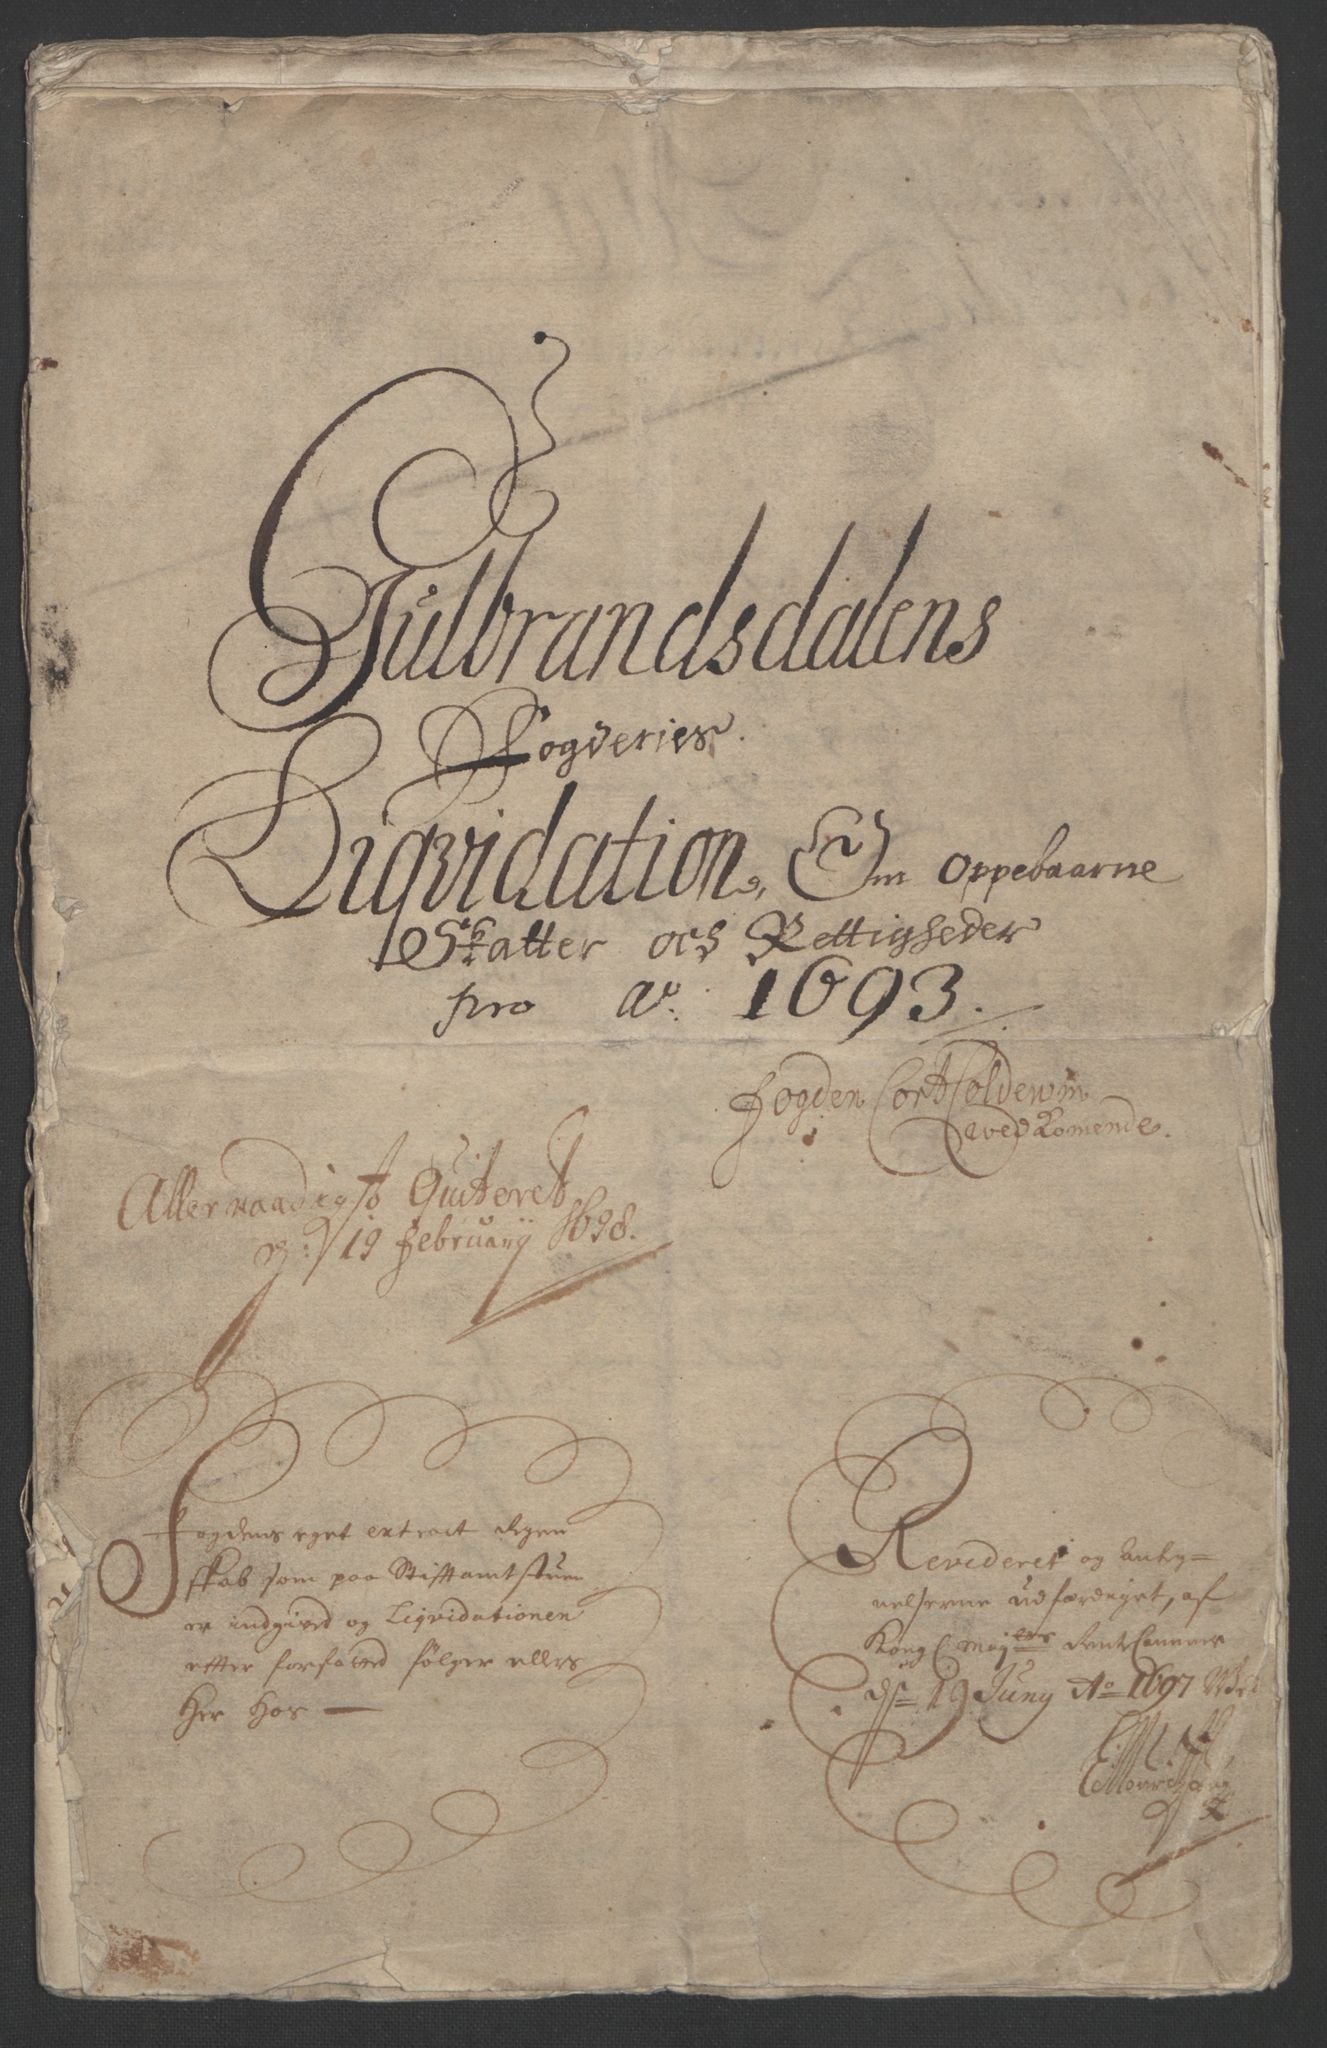 Gulbrandsdalens
Fogderies
Liqvidation, Om oppebaarne
Skatter och Rettigheder
pro Ao. 1693.
Fogden Cort Coldewin
vedkomende.
Allernaadigst Quiteret
d: 19 February 1698.
Fogdens eget extract Regen
skab som paa Stiftamtstuen
er indgived og Liqvidationen
efter forfatted følger ellers
her hos —
Revideret og Anteg=
nelserne udfærdiget, af
Kongl Mayts Rente Cammer
d 19 Juny Ao 1697